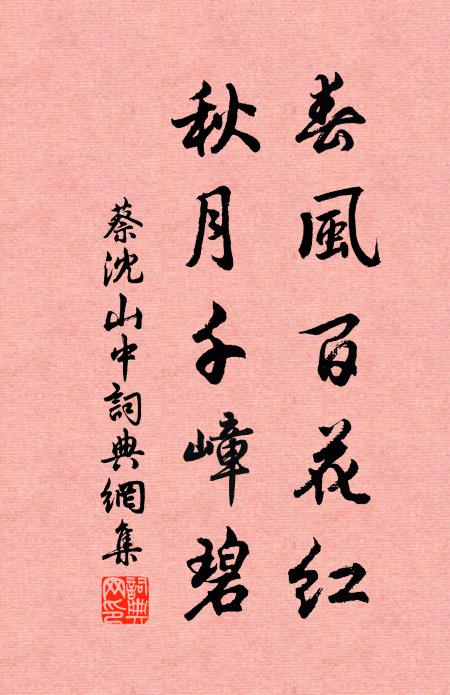 春風百花紅
秋月千嶂碧
蔡沈山中詞典網集
詞典網印